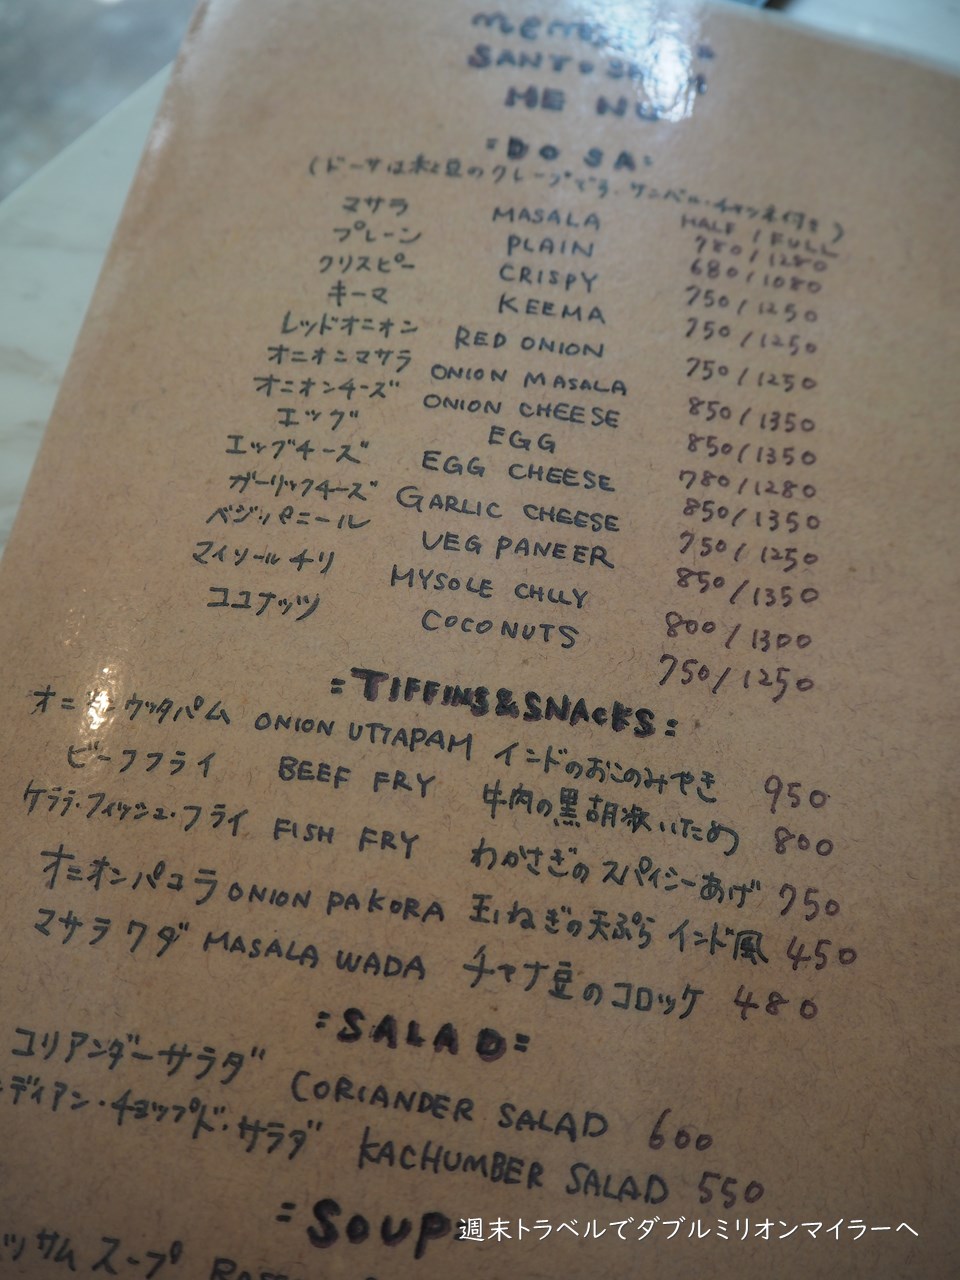 SANTOSHAM
MENU
=DOSA=
(ドーサは米と豆のクレープです。サンバル・チャツネ付き)
HALF / FULL
マサラ MASALA 780/1280
プレーン PLAIN 680/1080
クリスピー CRISPY 750/1250
キーマ KEEMA 750/1250
レッドオニオン RED ONION 750/1250
オニオンマサラ ONION MASALA 850/1350
オニオンチーズ ONION CHEESE 850/1350
エッグ EGG 780/1280
エッグチーズ EGG CHEESE 850/1350
ガーリックチーズ GARLIC CHEESE 750/1250
ベジパニール VEG PANEER 850/1350
マイソールチリ MYSOLE CHLLY 800/1300
ココナッツ COCONUTS 750/1250
=TIFFINS&SNACKS=
オニオンウッタパム ONION UTTAPAM インドのおこのみやき 950
ビーフフライ BEEF FRY 牛肉の黒胡椒いため 800
ケララ・フィッシュ・フライ FISH FRY わかさぎのスパイシーあげ 750
オニオンパコラ ONION PAKORA 玉ねぎの天ぷら インド風 450
マサラワダ MASALA WADA チャナ豆のコロッケ 480
=SALAD=
コリアンダーサラダ CORIANDER SALAD 600
ディアン・チョップド・サラダ KACHUMBER SALAD 550
=SOUP=
ッサムスープ
週末トラベルでダブルミリオンマイラーへ